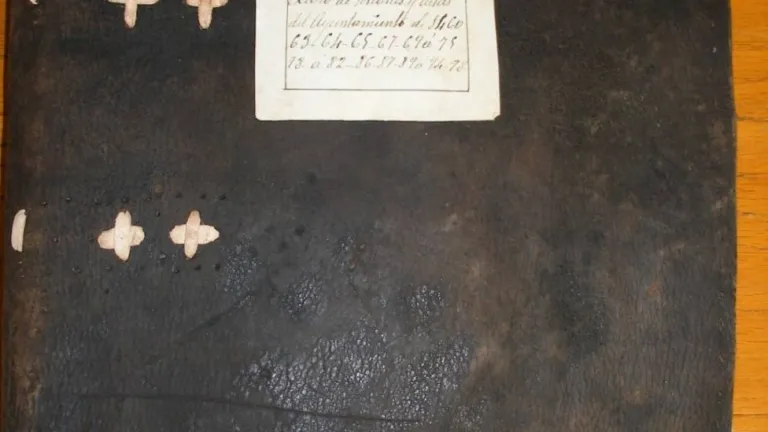 de sesiones y actas
del Ayuntamiento de 1460
63-64-65-67-69 á 75
78 á 82-86-87-89 á 94-98